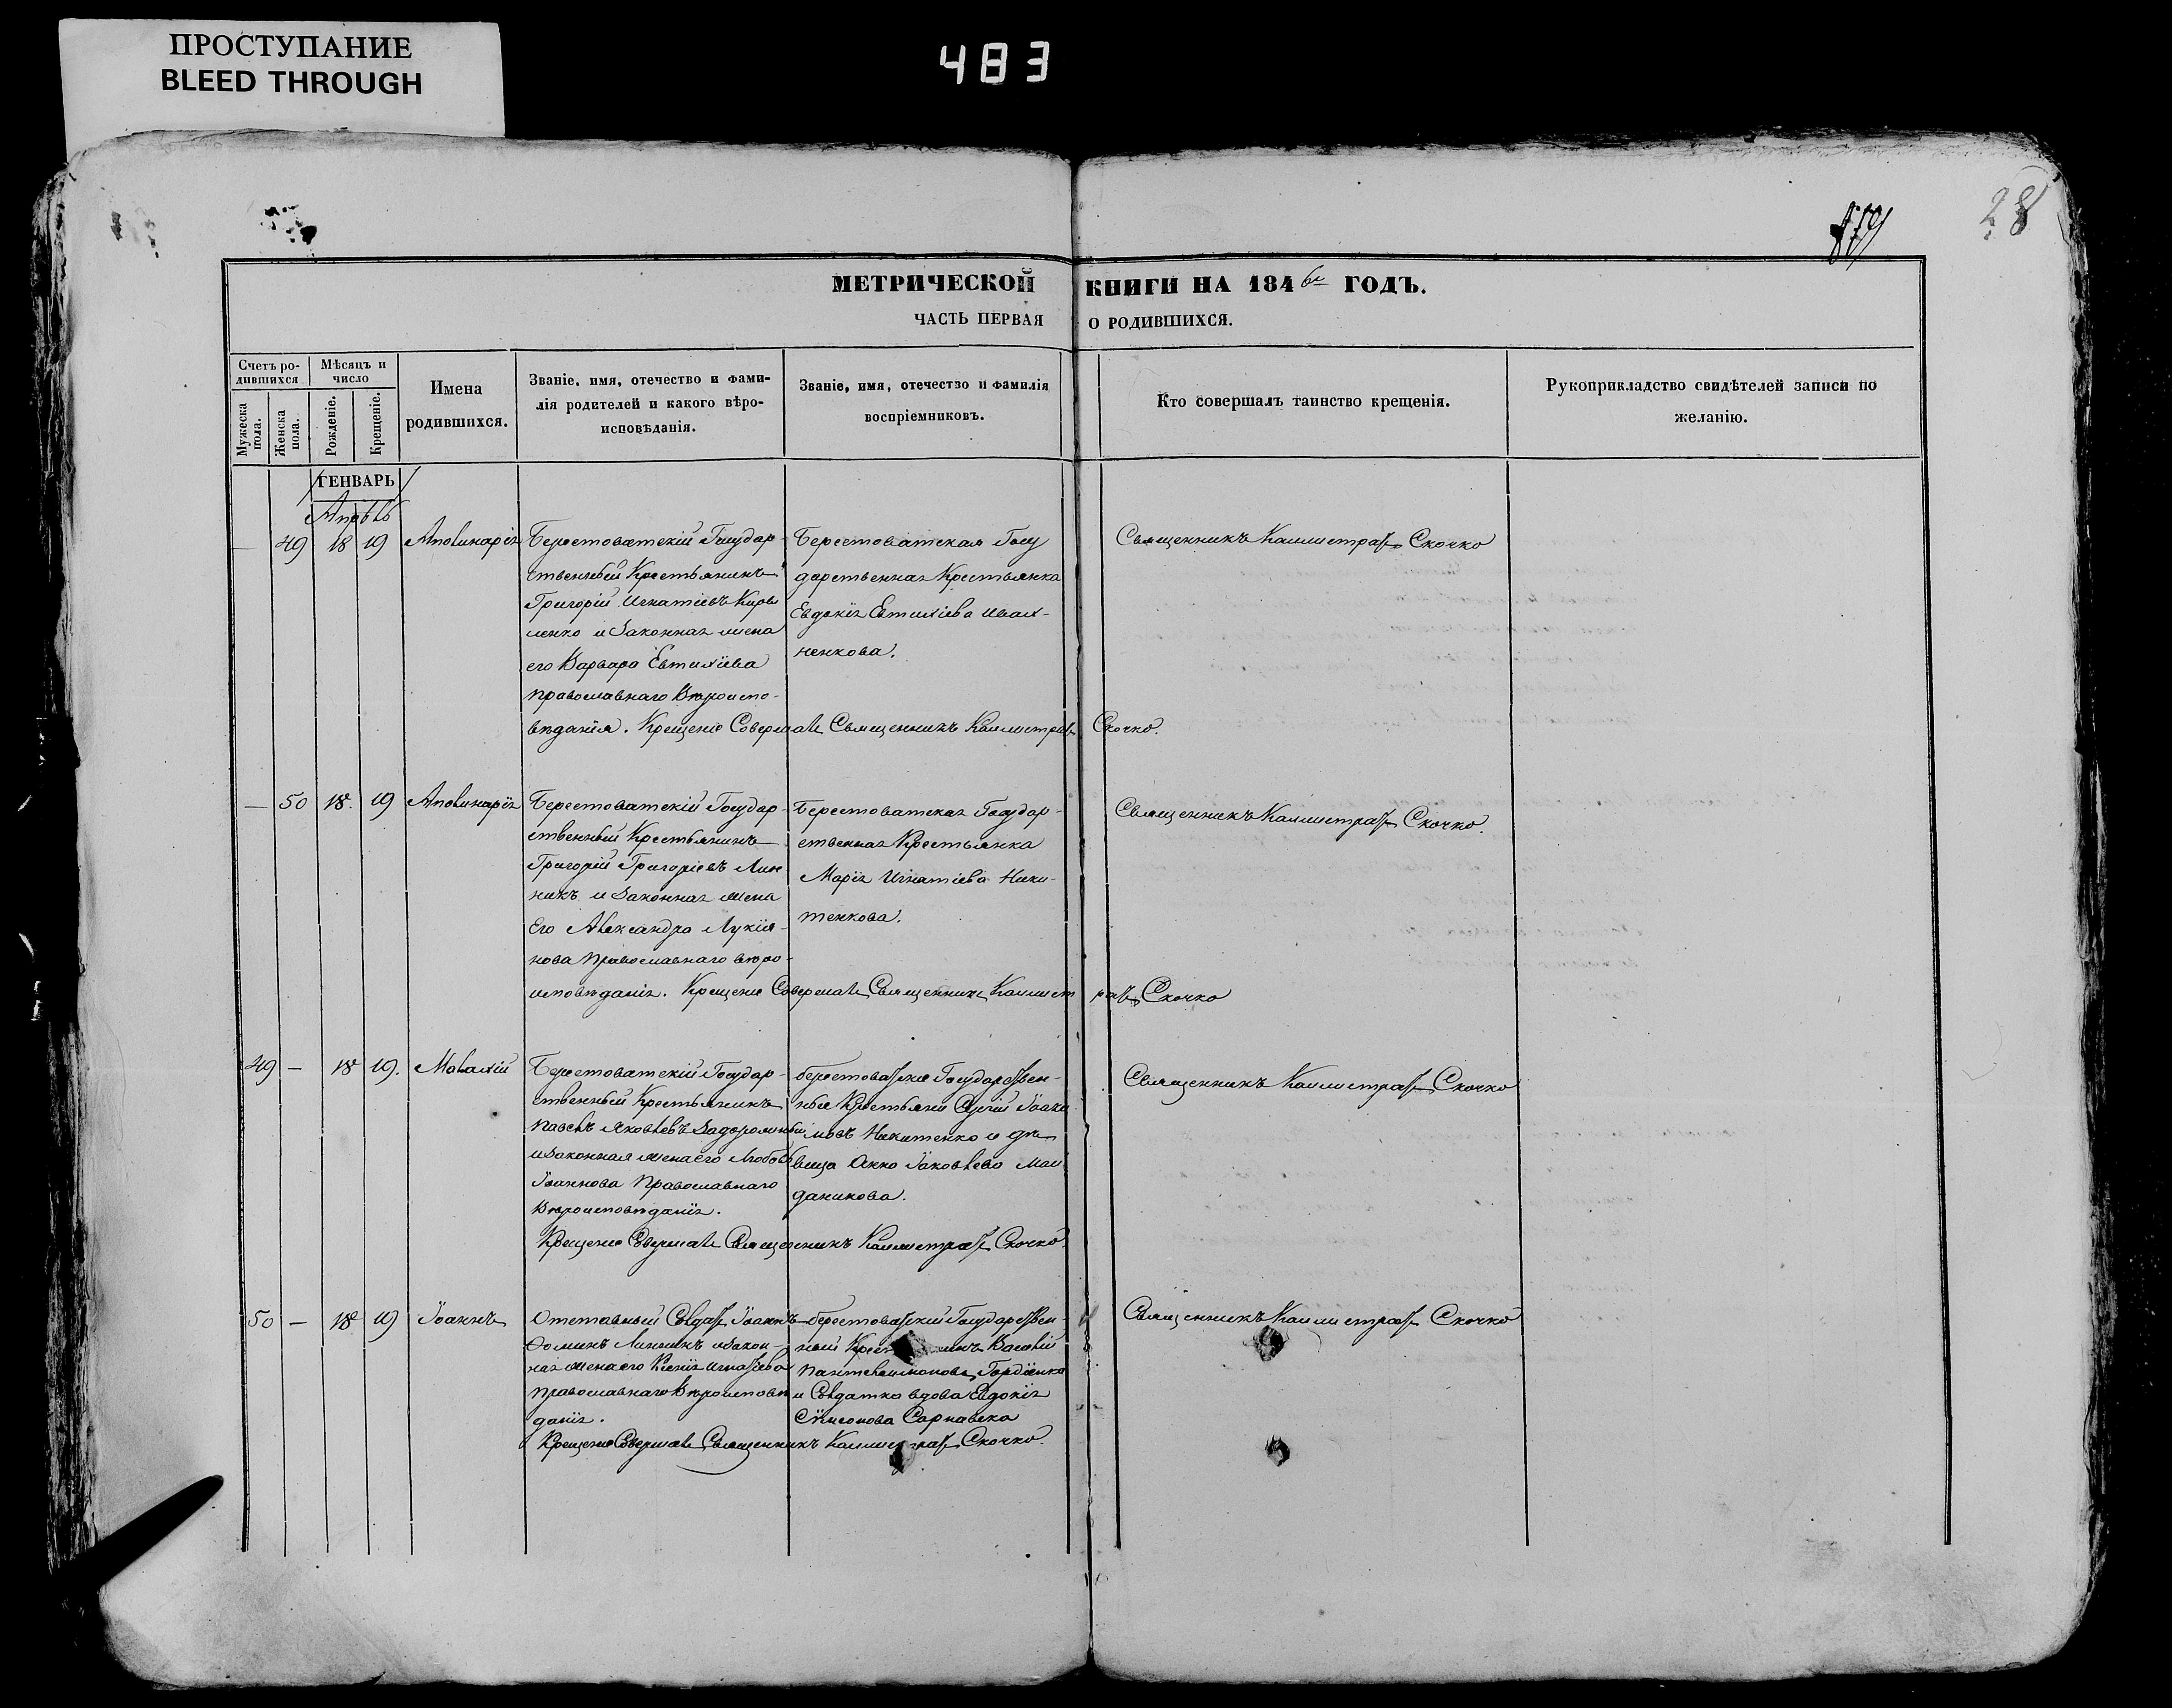 ПРОСТУПАНИЕ
BLEED THROUGH
483
28
МЕТРИЧЕСКОЙ КНИГИ НА 1846 ГОДЪ.
ЧАСТЬ ПЕРВАЯ О РОДИВШИХСЯ.
Счетъ ро-
дившихся
Мужеска пола.
Женска пола.
Мѣсяцъ и
число
Рожденіе.
Крещеніе.
Имена
родившихся.
Званіе, имя, отечество и фами-
лія родителей и какого вѣро-
исповѣданія.
Званіе, имя, отечество и фамилія
воспріемниковъ.
Кто совершалъ таинство крещенія.
Рукоприкладство свидѣтелей записи по
желанію.
ГЕНВАРЬ
Апрѣль
— 49 18 19 Аполинарія
Берестоватскій Государ-
ственный Крестьянинъ
Григорій Игнатіевъ
ленко и Законная жена
его Варвара Евтихіева
православнаго Вѣроиспо-
вѣданія. Крещеніе Совершалъ Священникъ Каллистратъ Скочко.
Берестоватская Госу
дарственная Крестьянка
Евдокія Евтихіева Иван-
ненкова.
Священникъ Каллистратъ Скочко
— 50 18. 19 Аполинарія
Берестоватскій Государ-
ственный Крестьянинъ
Григорій Григоріевъ Лин
никъ и Законная жена
Его Александра Лукія-
нова Православнаго вѣро-
исповѣданія. Крещеніе Совершалъ Священникъ Каллистратъ Скочко
Берестоватская Государ-
ственная Крестьянка
Марія Игнатіева Ники-
тенкова.
Священникъ Каллистратъ Скочко.
49 — 18 19.
Берестоватскій Государ-
ственный Крестьянинъ
Павелъ Яковлевъ Задорожный
и Законная жена его Любовь
Іоаннова Православнаго
Вѣроисповѣданія.
Крещеніе Совершалъ Священникъ Каллистратъ Скочко.
берестоватскіе Государствен-
ные Крестьяне Сергій Іоаки
мовъ Никитенко и дѣ
вица Анна Іаковлева Май
даникова.
Священникъ Каллистратъ Скочко
50 — 18 19 Іоаннъ
Отставный Солдатъ Іоаннъ
Ѳоминъ Линникъ и Закон-
ная жена его Ксенія Игнатіева
православнаго Вѣроисповѣ
данія.
Крещеніе Совершалъ Священникъ Каллистратъ Скочко.
берестоватскій Государствен-
ный Василій
Пантелеимоновъ Гордіенко
и Солдатка вдова Евдокія
Симеонова Сарпавска
Священникъ Каллистратъ Скочко